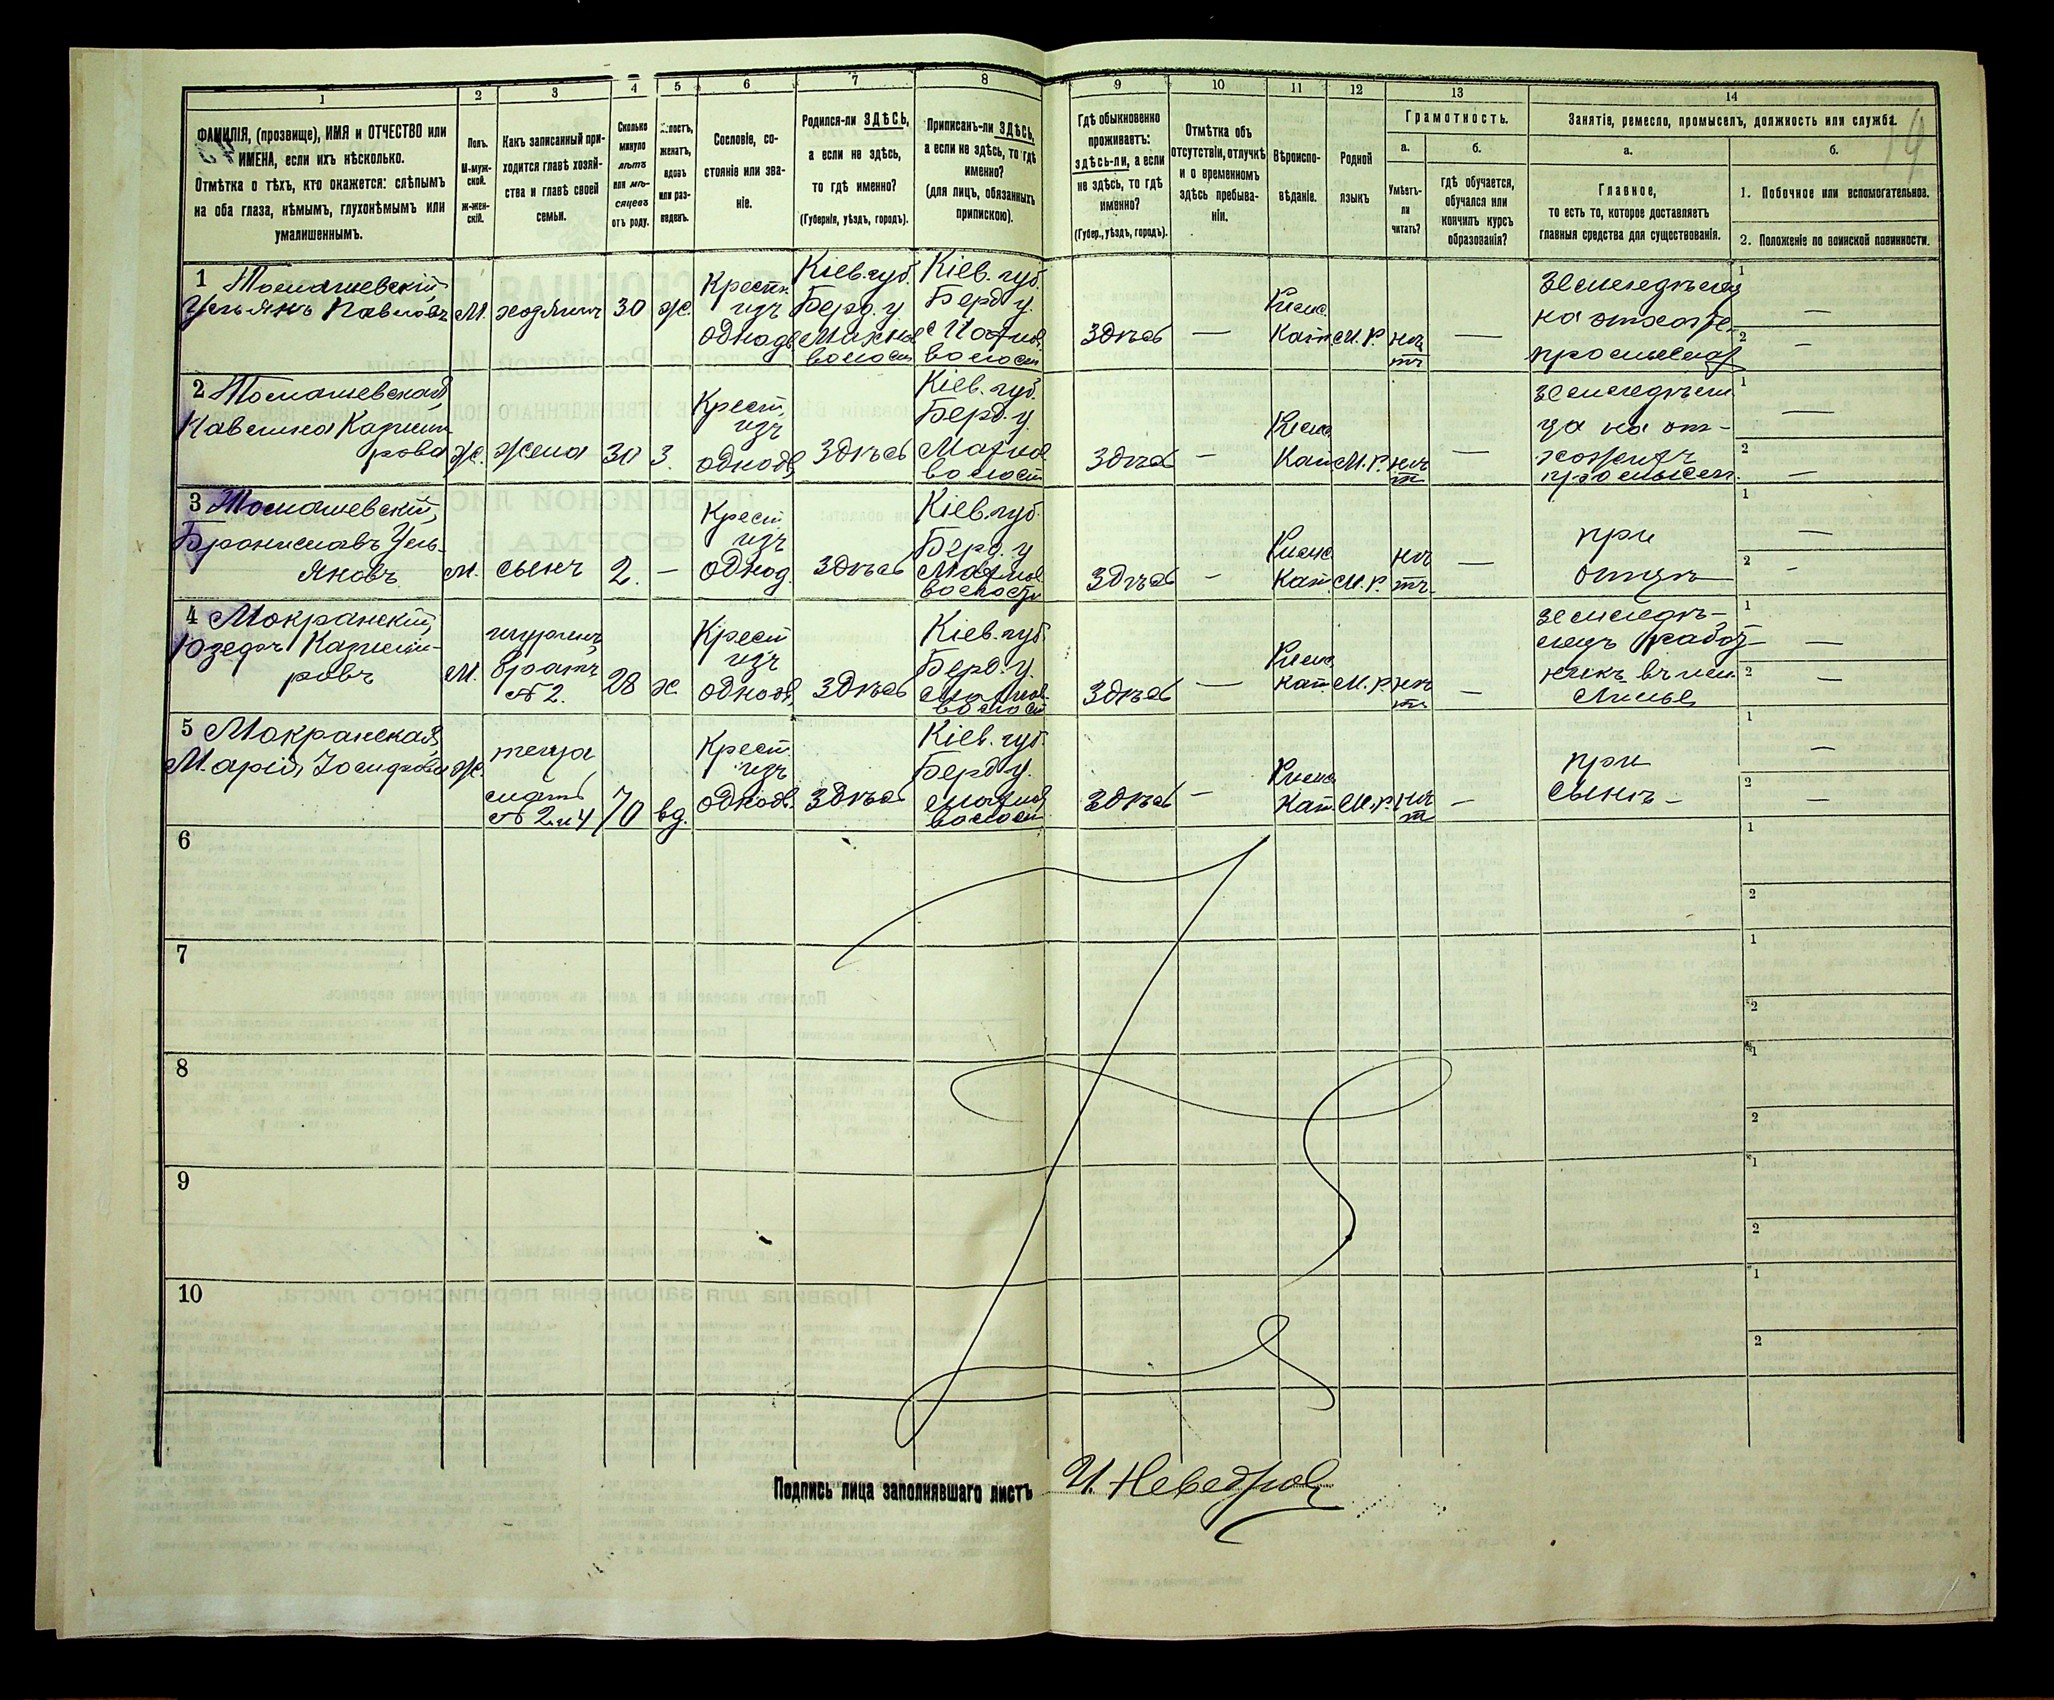 1 2 3 4 5 6 7 8 9 10 11 12 13 14
ФАМИЛІЯ, (прозвище), ИМЯ и ОТЧЕСТВО или
ИМЕНА, если ихъ нѣсколько.
Отмѣтка о тѣхъ, кто окажется: слѣпымъ
на оба глаза, нѣмымъ, глухонѣмымъ или
умалишеннымъ.
Полъ.
М-муж-
ской.
ж-жен-
скій.
Какъ записанный при-
ходится главѣ хозяй-
ства и главѣ своей
семьи.
Сколько
минуло
лѣтъ
или мѣ-
сяцевъ
отъ роду.
Холостъ,
женатъ,
вдовъ
или раз-
веденъ.
Сословіе, со-
стояніе или зва-
ніе.
Родился-ли ЗДѢСЬ,
а если не здѣсь,
то гдѣ именно?
(Губернія, уѣздъ, городъ).
Приписанъ-ли ЗДѢСЬ,
а если не здѣсь, то гдѣ
именно?
(для лицъ, обязанныхъ
припискою).
Гдѣ обыкновенно
проживаетъ:
здѣсь-ли, а если
не здѣсь, то гдѣ
именно?
(Губер., уѣздъ, городъ).
Отмѣтка объ
отсутствіи, отлучкѣ
и о временномъ
здѣсь пребыва-
ніи.
Вѣроиспо-
вѣданіе.
Родной
языкъ
Грамотность.
а.
Умѣетъ-
ли
читать?
б.
гдѣ обучается,
обучался или
кончилъ курсъ
образованія?
Занятіе, ремесло, промыселъ, должность или служба.
а.
Главное,
то есть то, которое доставляетъ
главныя средства для существованія.
б.
1. Побочное или вспомогательное.
2. Положеніе по воинской повинности.
1 Томашевскій
Ульянъ Павловъ
М.
хозяинъ
30
ж.
Крестн.
изъ
однодв
Кіев. губ.
Берд. у.
Махнов
волост
Кіев. губ.
Берд. у.
Махнов
волост
Здѣсь
—
Римс.
Кат.
М. Р.
нѣ
тъ
—
на отхоже
промыслах
1 —
2 —
2 Томашевская
Павлина Кажим
рова
Ж.
жена
30
З.
Крест.
изъ
однодв
Здѣсь
Кіев. губ.
Берд. у
Махнов
волост
Здѣсь
—
Римс.
Кат.
М. Р.
нѣ
т
—
ца на от-
хожихъ
промысел.
1 —
2 —
3 Томашевскій
Брониславъ Уль-
яновъ
М.
сынъ
2.
—
Крест.
изъ
однод.
Здѣсь
Кіев. губ.
Берд. у
Махнов
волости
Здѣсь
—
Римс.
Кат.
М. Р.
нѣ
тъ
—
при
отцѣ
1 —
2 —
4 Мокранскій
Юзефъ Кажими-
ровъ
М.
шуринъ
братъ
№ 2.
28
х.
Крест
изъ
однодв
Здѣсь
Кіев. губ.
Берд. у.
Махнов.
волост
Здѣсь
—
Римс.
Кат.
М. Р.
нѣ
т
—
земледѣ-
лецъ работ-
никъ въ
1 —
2 —
5 Мокранская
Марія Іосифова
Ж.
теща
мать
№ 2 и 4
70
вд.
Крест.
изъ
однодв.
Здѣсь
Кіев. губ.
Берд. у.
Махнов
волост
Здѣсь
—
Римс.
Кат.
М. Р.
нѣ
т
—
при
сынѣ —
1 —
2 —
6
1
2
7
1
2
8
1
2
9
1
2
10
1
2
Подпись лица заполнявшаго листъ И. Неведров